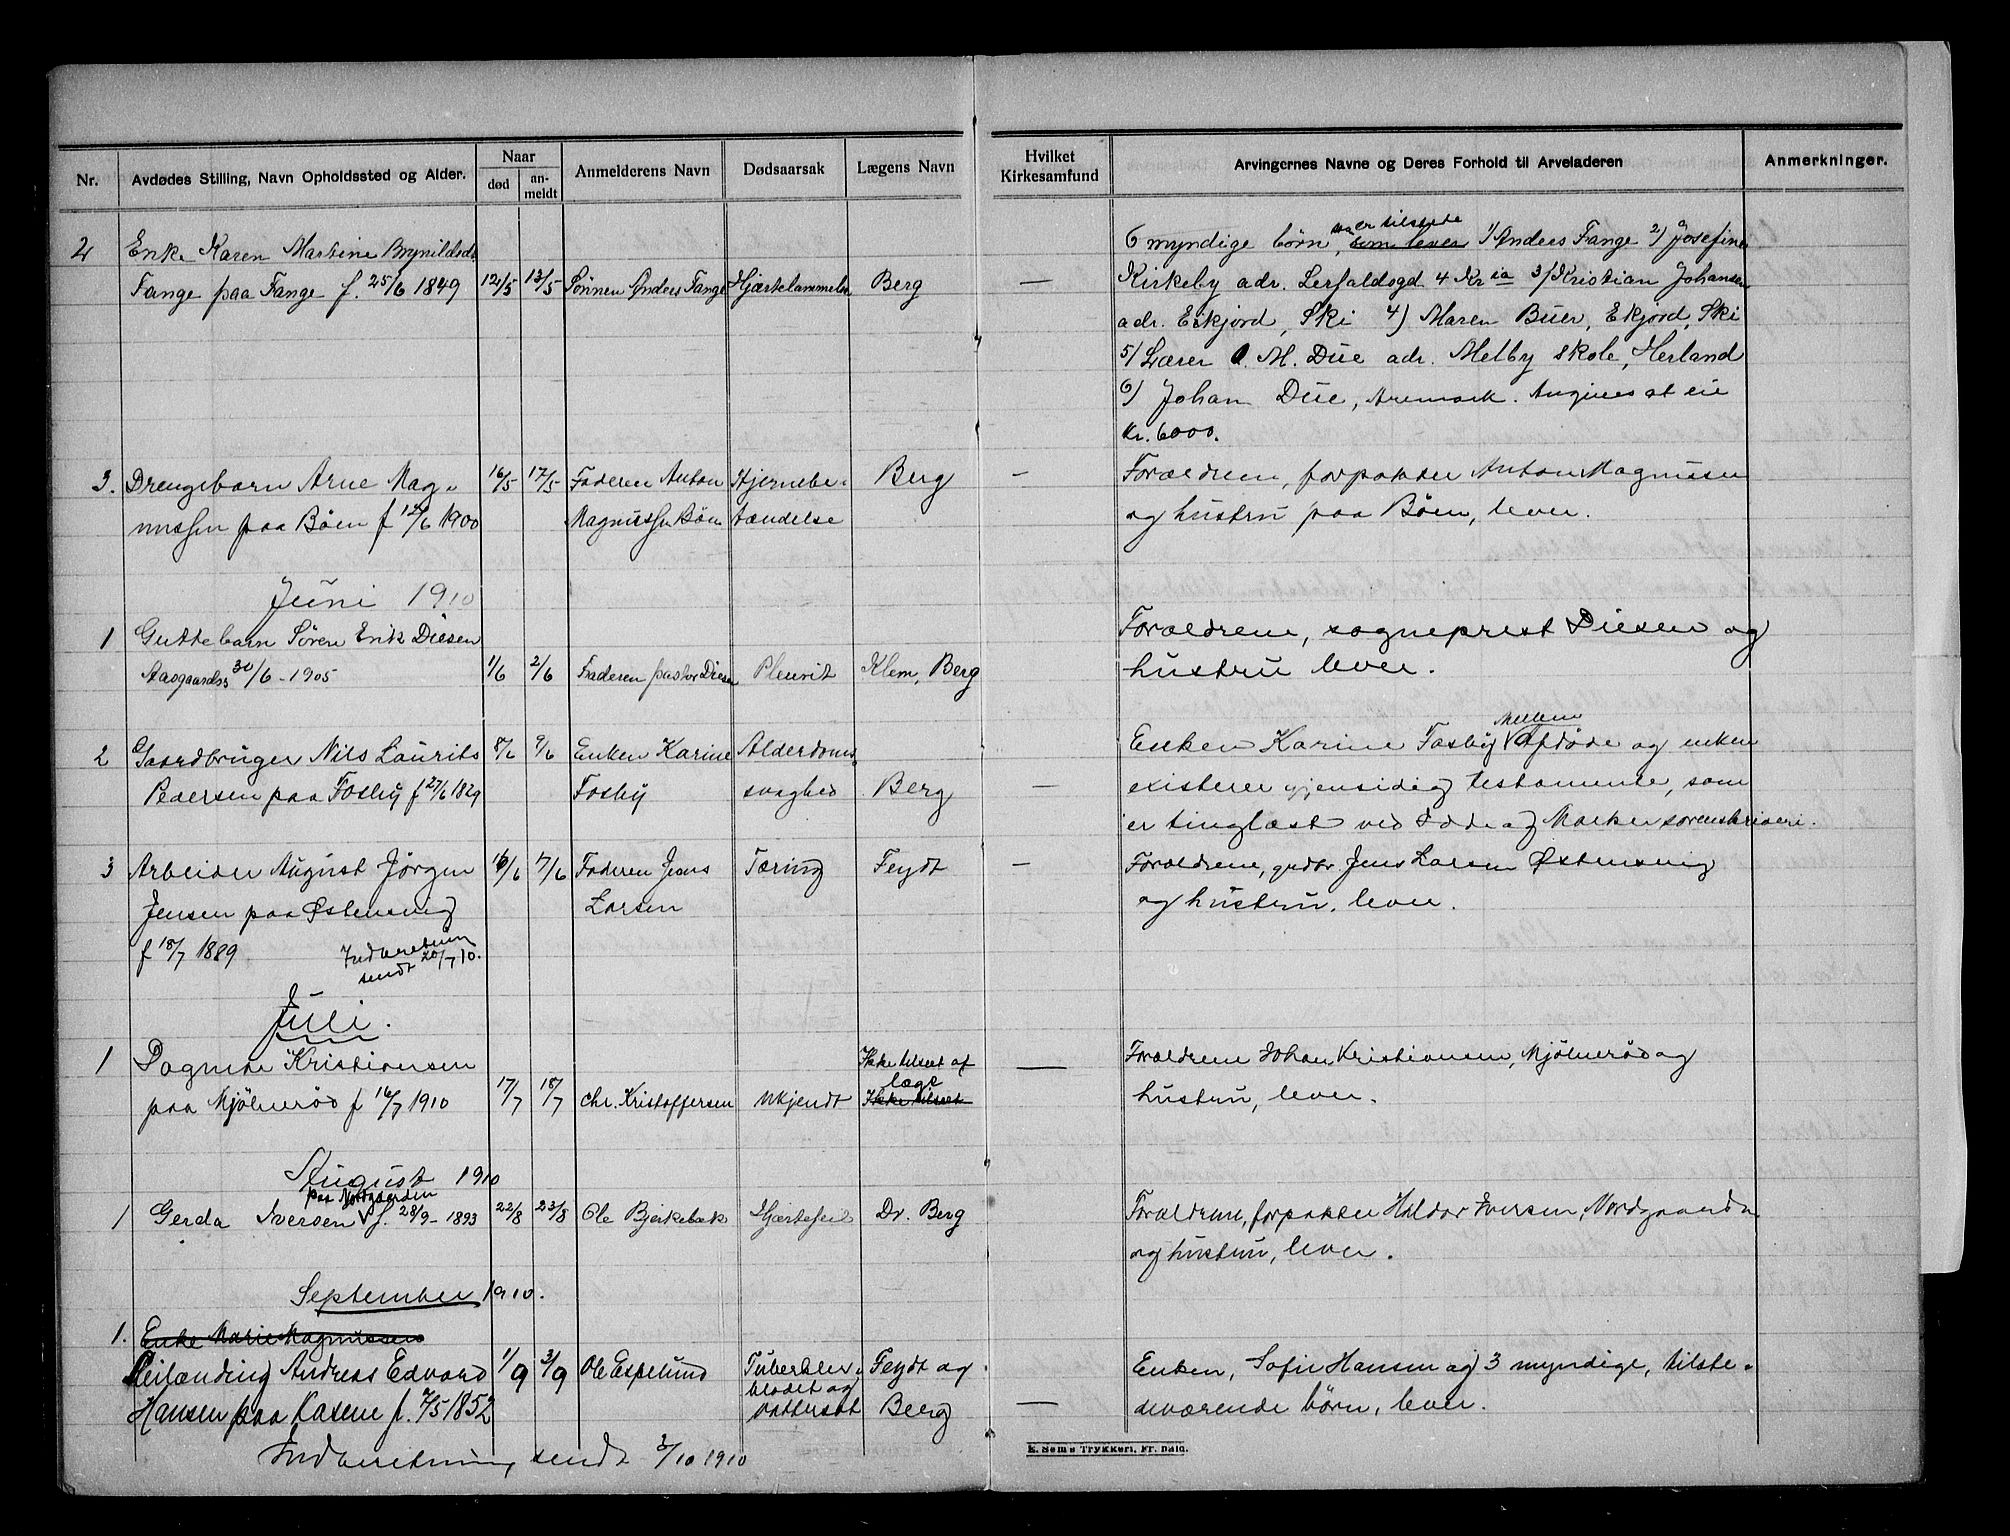 Nr.
Avdødes Stilling, Navn Opholdssted og Alder.
Naar
død
an-
meldt
Anmelderens Navn
Dødsaarsak
Lægens Navn
Hvilket
Kirkesamfund
Arvingernes Navne og Deres Forhold til Arveladeren
Anmerkninger.
2 Enke Karen Martine Brynildsd.
Fange paa Fange f. 25/6 1849 12/5 13/5 Sønnen Anders Fange Hjertelammelse Berg —
er tilstede
6 myndige børn, som lever 1) Anders Fange 2) Josefine
Kirkeby adr. Lerfaldsgd. 4 Kr ia 3) Kristian Johansen
adr. Eskjord, Ski 4) Maren Buer, Ekjord, Ski
5) Lærer O. M. Due adr. Melby skole, Herland
6) Johan Due, Aremark. Angives at eie
kr. 6000.
3. Drengebarn Arne Mag- 16/5 17/5 Faderen Anton Hjernebe- Berg —
nussen paa Böen f 12/6 1900 Magnussen Böen tændelse
Forældrene, forpakter Anton Magnussen
og hustru paa Böen, lever.
Juni 1910
1 Guttebarn Sören Erik Diesen
30/6 - 1905 1/6 2/6 Faderen pastor Diesen Pleurit Klem, Berg
Forældrene, sogneprest Diesen og
hustru lever.
2 Gaardbruger Nils Laurits 8/6 9/6 Enken Karine Alderdoms-
Pedersen paa Fosby f 27/6 1829 Fosby svaghed Berg —
Mellem
Enken Karine Fosby V Afdøde og enken
existerer gjensidig testamente, som
er tinglæst ved Idde og Marker sorenskriveri.
3 Arbeider August Jörgen 16/6 17/6 Faderen Jens Tæring Feydt —
Jensen paa Østensvig Larsen
f 18/7 1889 Indberetning
sendt 20/7 10.
Forældrene, grdbr. Jens Larsen Østensvig
og hustru, lever.
Juli.
1 Dagnete Kristiansen
paa Mjölneröd f 16/7 1910 17/7 18/7 Chr. Kristoffersen Ukjendt
Ikke tilseet af
læge
Ikke tilseet
—
Forældrene Johan Kristiansen, Mjölneröd og
hustru, lever.
August 1910
paa Nordgaarden
1 Gerda Iversen V f. 28/9 - 1893 22/8 23/8 Ole Bjerkebæk Hjertefeil Dr. Berg
Forældrene, forpakter Haldor Iversen, Nordgaarden
og hustru, lever.
September 1910.
1. Enke Marie Magnussen
Leilænding Andreas Edvard 1/9 3/9 Ole Espelund Tuberkler i Feydt og
Hansen paa Kasene f. 7/5 1852 blodet og
vattersot Berg —
Enken, Sofie Hansen og 3 myndige, tilste-
deværende børn, lever.
Indberetning sendt 3/10 1910
E. Sems Trykkeri, Fr. hald.